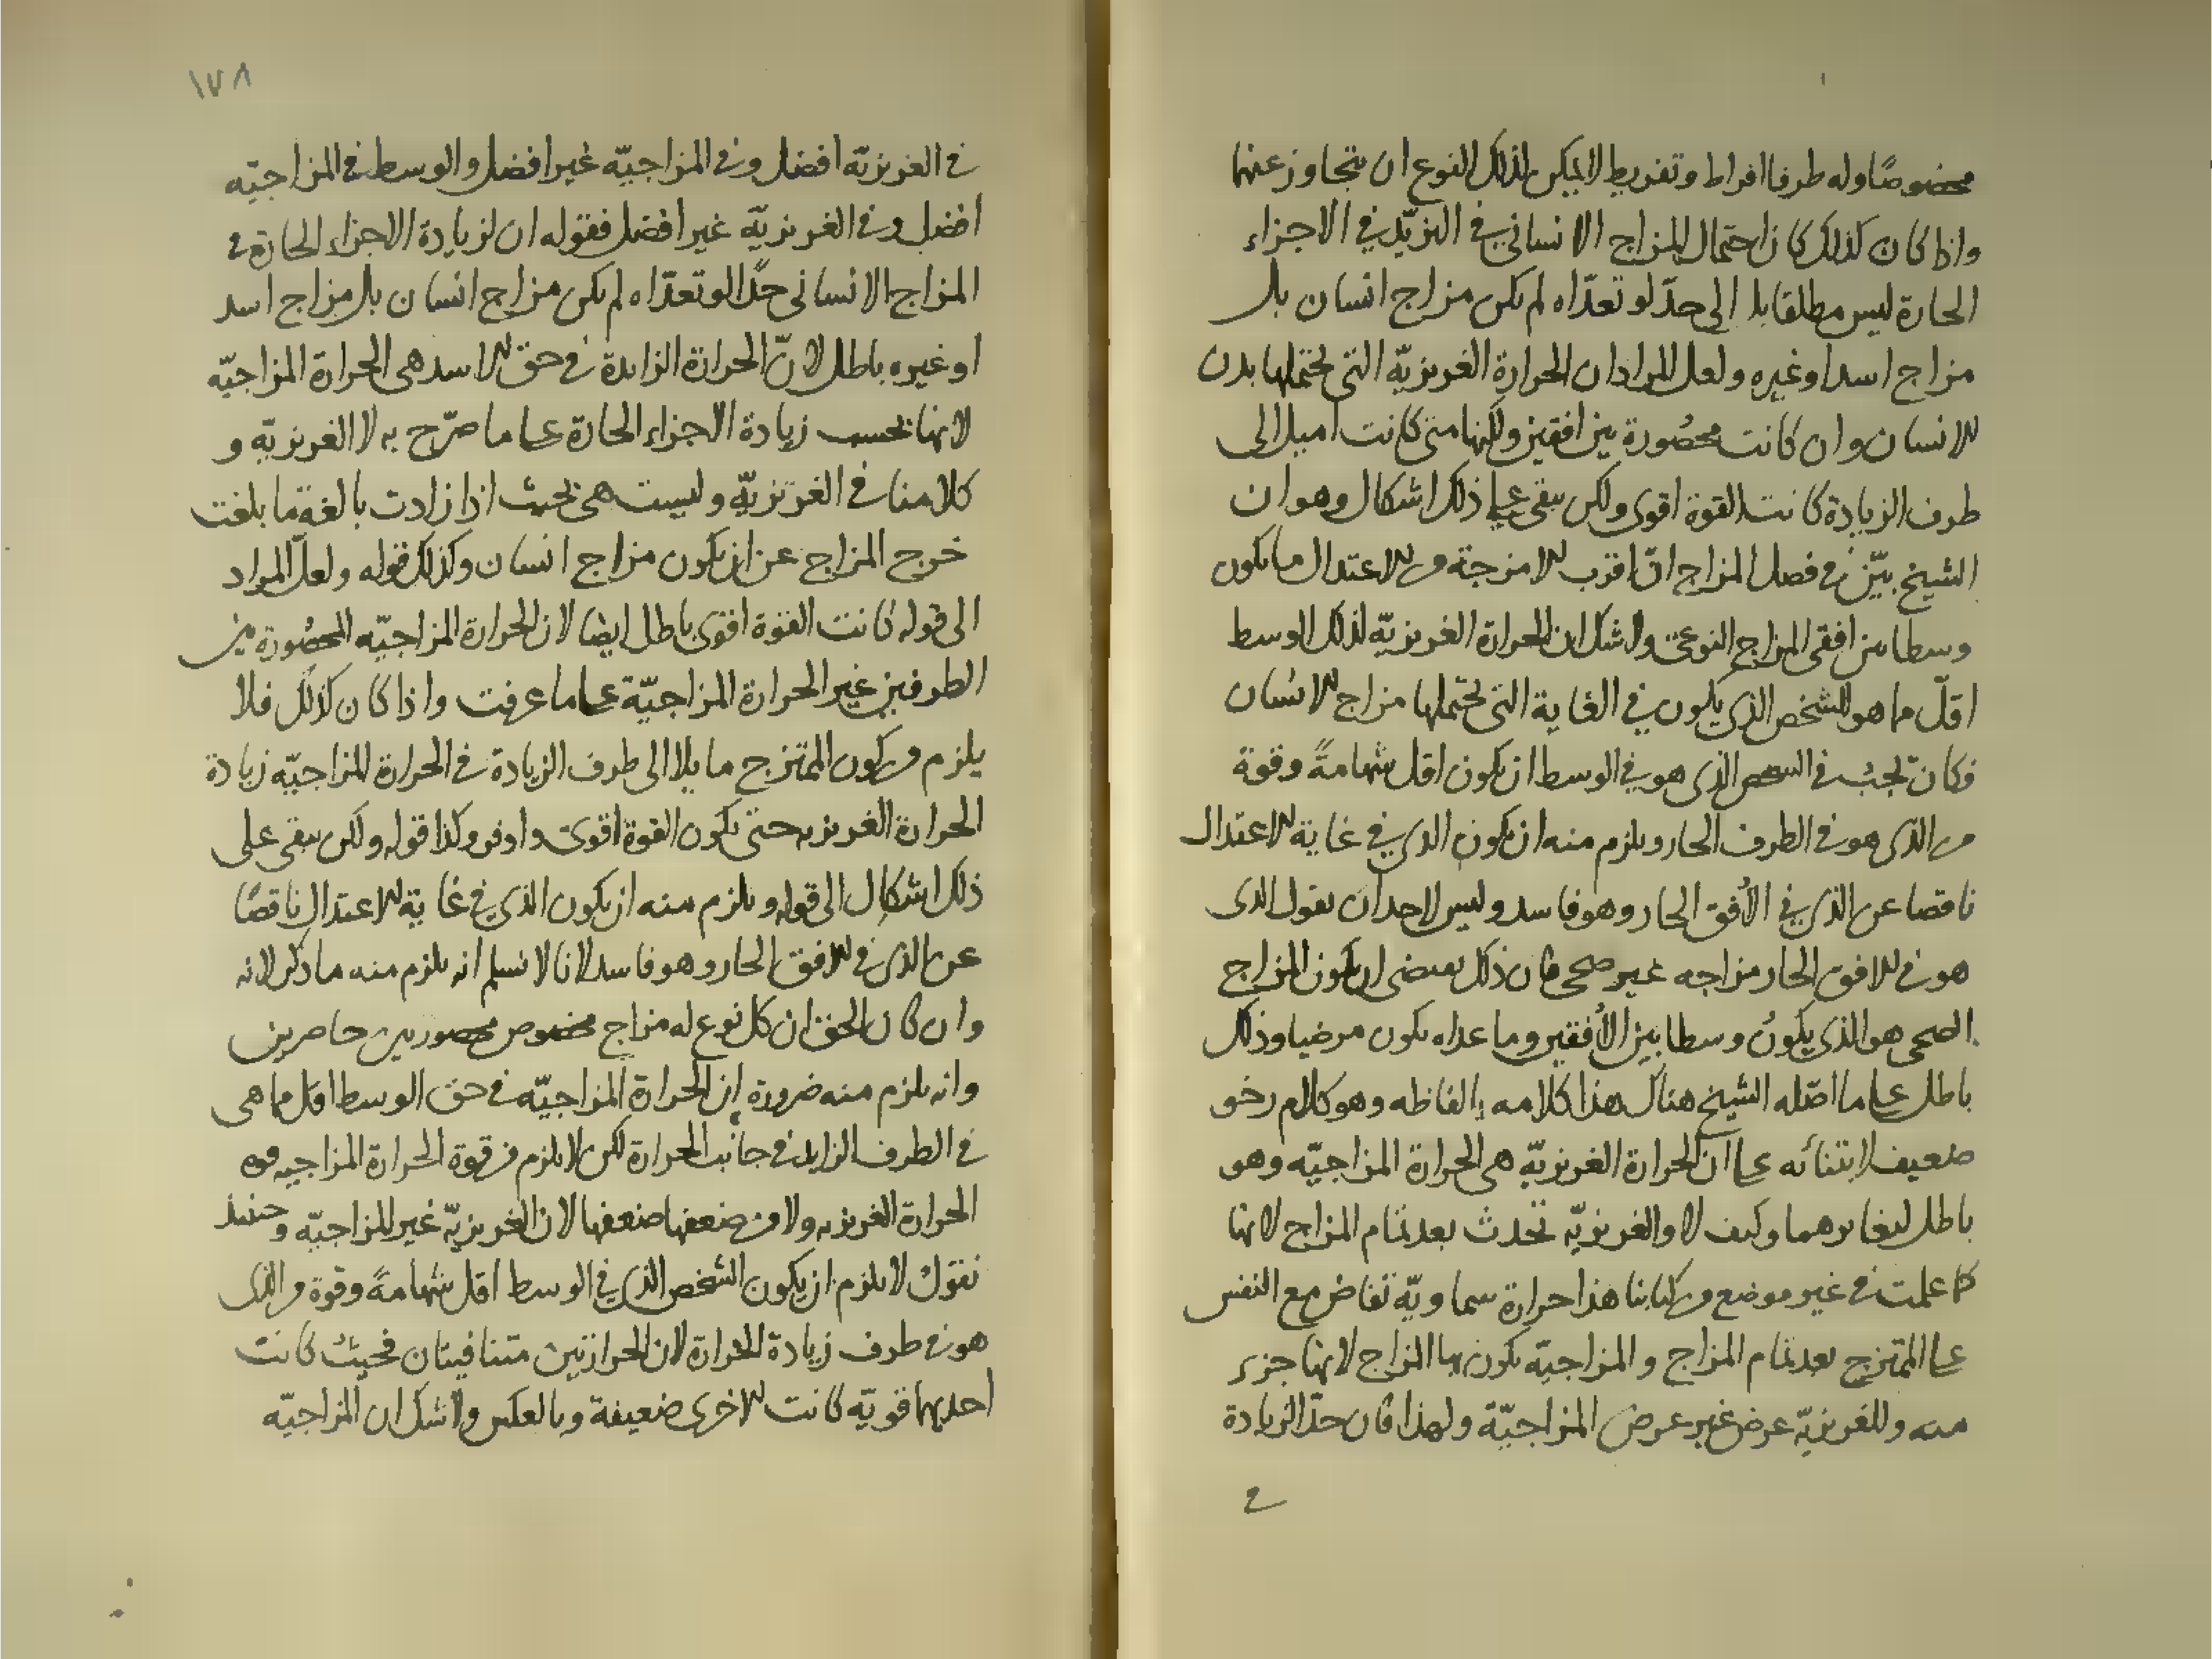 مخصوصًا وله طرفا افراط وتفريط لا يمكن لذلك النوع ان يتجاوز عنهما
واذا كان كذلك كان احتمال المزاج الانساني في التزيّد في الاجزاء
الحارة ليس مطلقا بل الى حدّ لو تعدّاه لم يكن مزاج انسان بل
مزاج اسد او غيره ولعل المراد ان الحرارة الغريزيّة التي تحتملها بدن
الانسان وان كانت محصُورة بين افقين ولكنها متى كانت اميل الى
طرف الزيادة كانت القوة اقوى ولكن يبقى على ذلك اشكال وهو ان
الشيخ بيّن في فصل المزاج انّ اقرب الامزجة من الاعتدال ما يكون
وسطا بين افقي المزاج النوعي ولا شك ان الحرارة الغريزيّة لذلك الوسط
اقلّ مما هو للشخص الذي يكون في الغاية التي تحتملها مزاج الانسان
فكان يجبُ في الشخص الذي هو في الوسط ان يكون اقل شهامةً وقوة
من الذي هو في الطرف الحار ويلزم منه ان يكون الذي في غاية الاعتدال
ناقصا عن الذي في الأفق الحار وهو فاسد وليس لاحد ان يقول الذي
هو في الافق الحار مزاجه غير صحي فان ذلك يقتضى ان يكون المزاج
الصحي هو الذي يكونُ وسطا بين الأفقين وما عداه يكون مرضيا وذلك
باطل على ما اصّله الشيخ هناك هذا كلامه بالفاظه وهو كلام رخو
ضعيف لابتنائه على ان الحرارة الغريزيّة هي الحرارة المزاجيّه وهو
باطل لتغايرهما وكيف لا والغريزيّه تحدث بعد تمام المزاج لانها
كما علمت في غير موضع من كتابنا هذا حرارة سماويّة تفاض مع النفس
على الممتزج بعد تمام المزاج والمزاجيّه يكون بها المزاج لانها جزء
منه وللغريزيّة عرض غير عرض المزاجيّة ولهذا كان حدّ الزيادة
في
١٧٨
في الغريزيّه افضل وفي المزاجيّه غير افضل والوسط في المزاجيّه
افضل وفي الغريزيّه غير افضل فقوله ان لزيادة الاجزاء الحارة في
المزاج الانساني حدًّا لو تعدّاه لم يكن مزاج انسان بل مزاج اسد
او غيره باطل لانّ الحرارة الزايدة في حق الاسد هي الحرارة المزاجيّه
لانها بحسب زيادة الاجزاء الحارة على ما صرّح به لا الغريزيّه و
كلامنا في الغريزيّه وليست هي بحيث اذا زادت بالغة ما بلغت
خرج المزاج عن ان يكون مزاج انسان وكذلك قوله ولعلّ المراد
الى قوله كانت القوة اقوى باطل ايضا لان الحرارة المزاجيّه المحصُورة بين
الطرفين غير الحرارة المزاجيّة على ما عرفت واذا كان كذلك فلا
يلزم من كون الممتزج مايلا الى طرف الزيادة في الحرارة المزاجيّه زيادة
الحرارة الغريزيه حتى يكون القوة اقوى واوفر وكذا قوله ولكن يبقى على
ذلك اشكال الى قوله ويلزم منه ان يكون الذي في غاية الاعتدال ناقصًا
عن الذي في الافق الحار وهو فاسد لانا لا نسلم انه يلزم منه ما ذكر لانه
وان كان الحق ان كل نوع له مزاج مخصوص محصور بين حاصرين
وانه يلزم منه ضرورة ان الحرارة المزاجيّه في حق الوسط اقل مما هي
في الطرف الزايد في جانب الحرارة لكن لا يلزم من قوة الحرارة المزاجيه قوة
الحرارة الغريزيه ولا من ضعفها ضعفها لان الغريزيّه غير المزاجيّه وحينئذ
نقول لا يلزم ان يكون الشخص الذي في الوسط اقل شهامةً وقوة من الذي
هو في طرف زيادة الحرارة لان الحرارتين متنافيتان فحيثُ كانت
احديهما قويّه كانت الاخرى ضعيفة وبالعكس ولا شك ان المزاجيّه